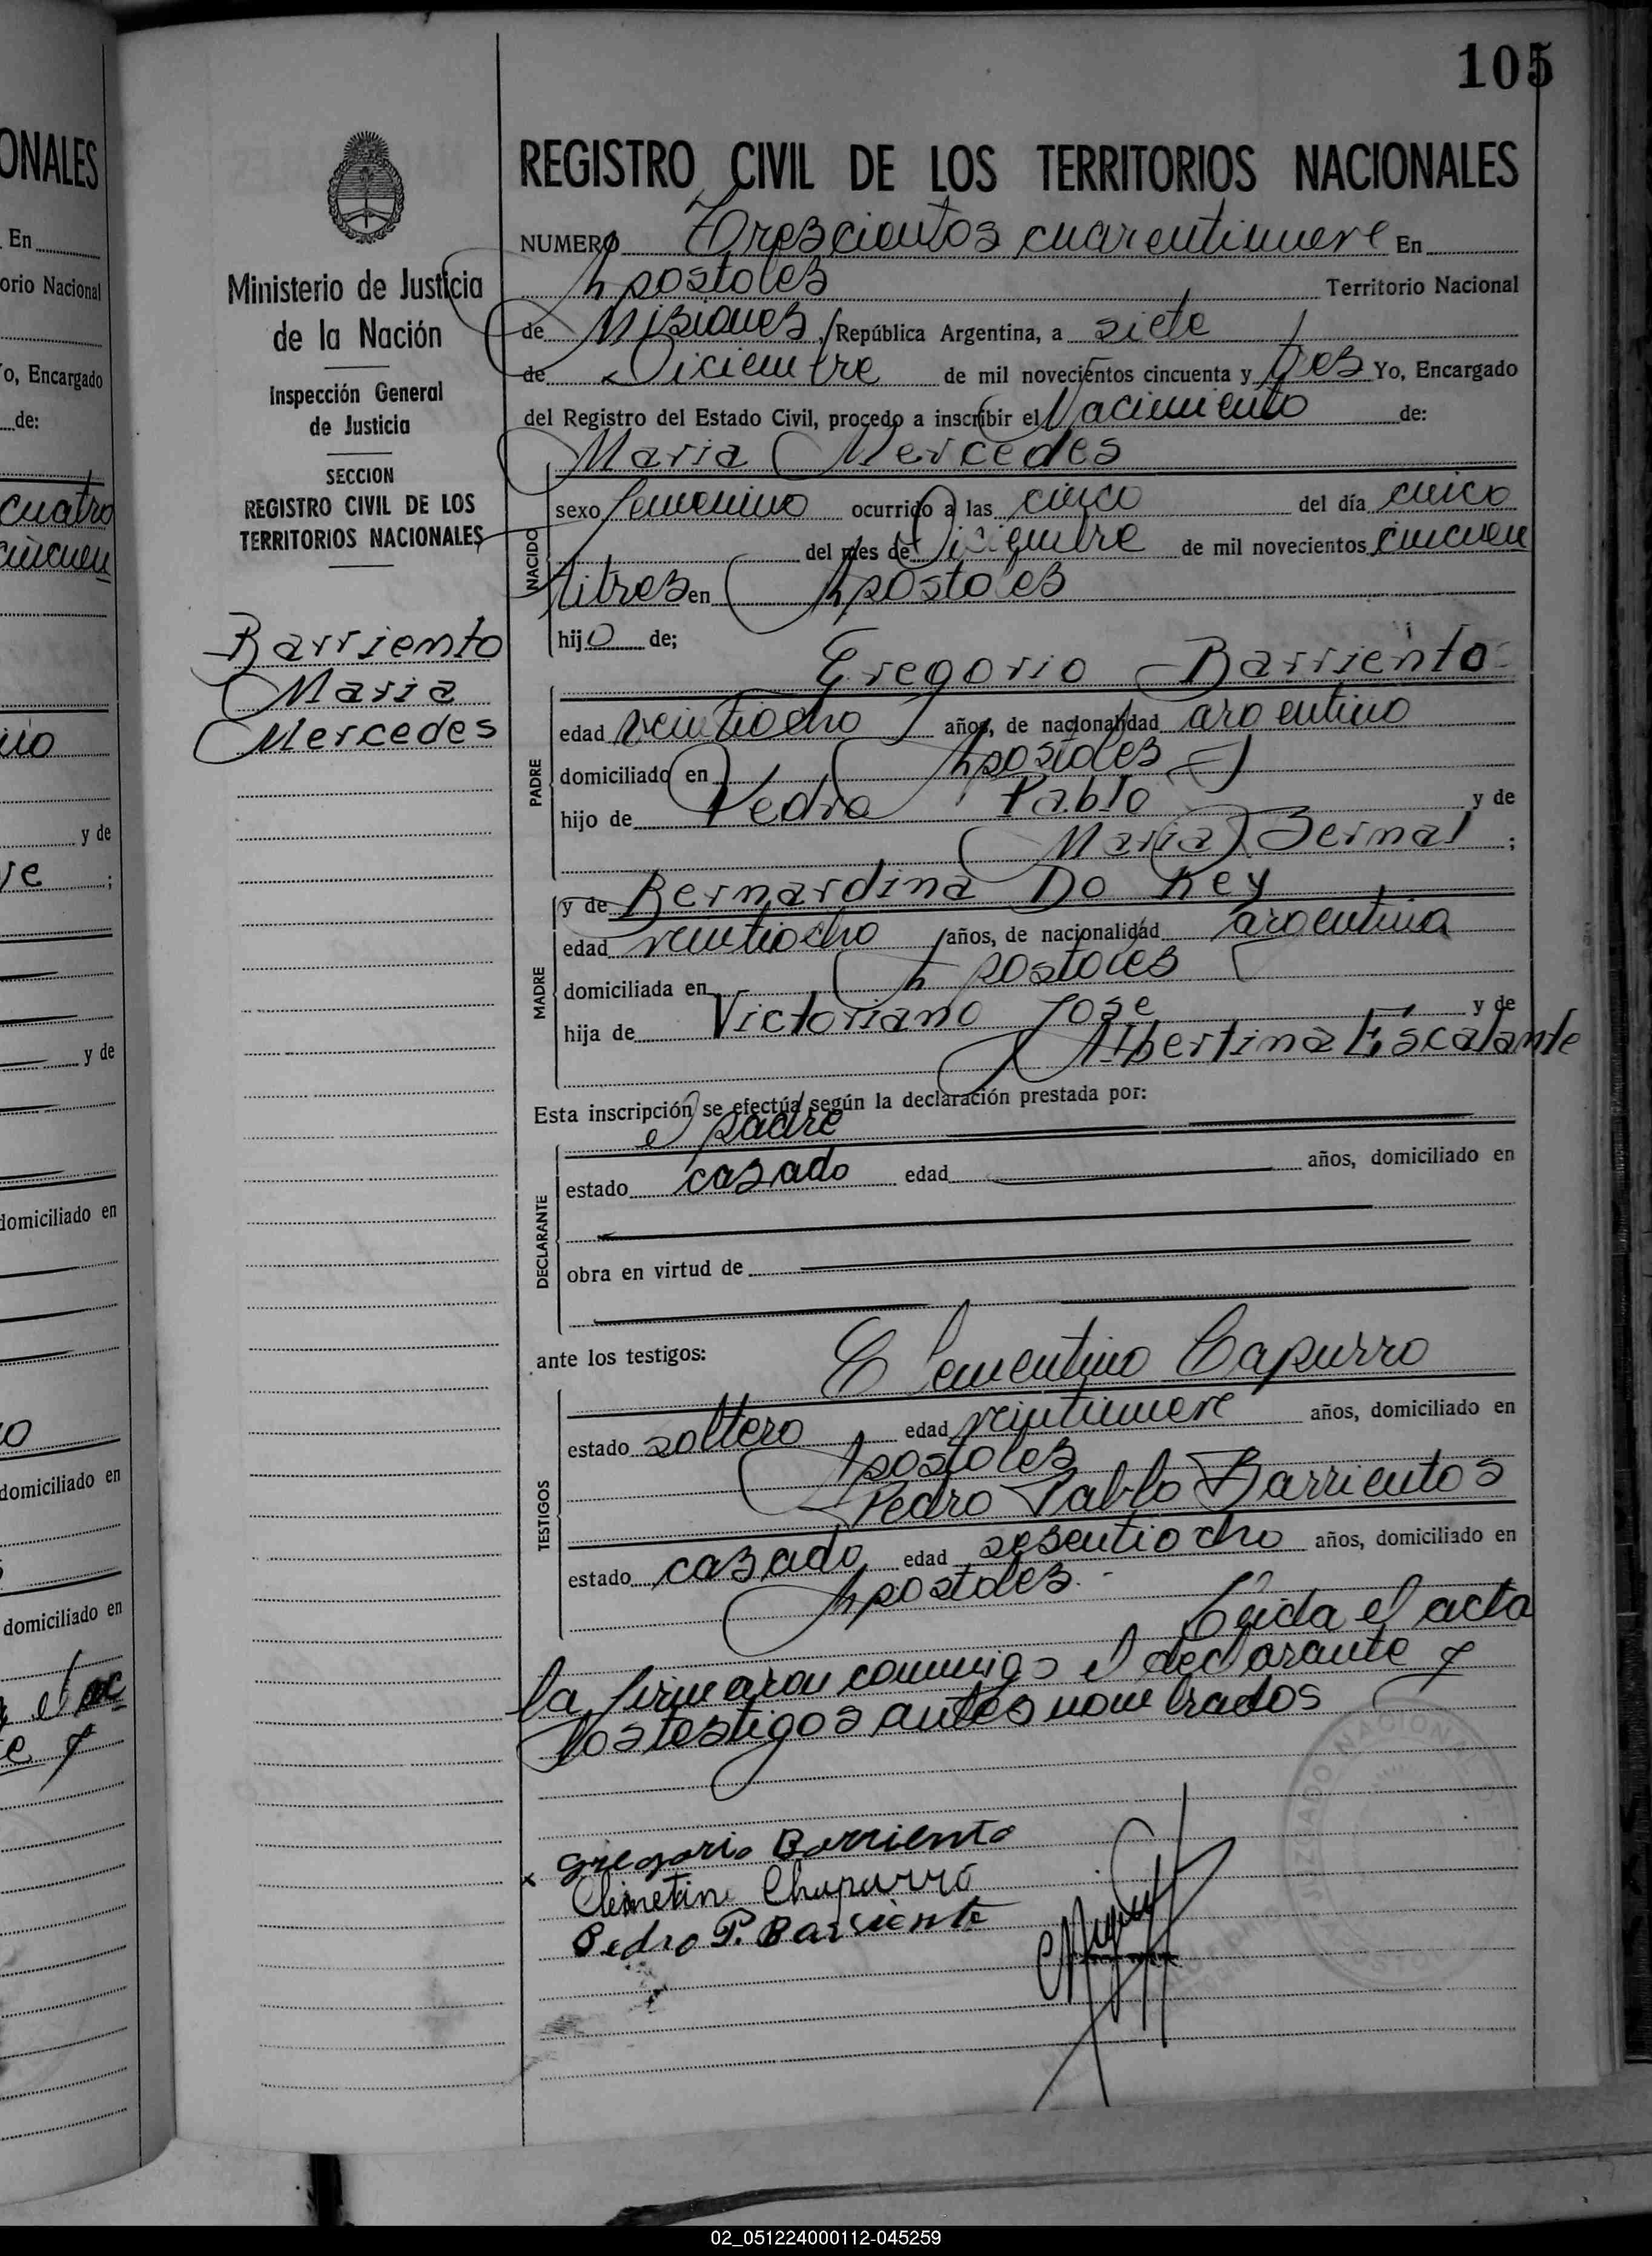 105
ONALES
En
orio Nacional
o, Encargado
de:
cuatro
cincuen
y de
y de
domiciliado en
domiciliado en
domiciliado en
Ministerio de Justicia
de la Nación
Inspección General
de Justicia
SECCION
REGISTRO CIVIL DE LOS
TERRITORIOS NACIONALES
Barriento
Maria
Mercedes
REGISTRO CIVIL DE LOS TERRITORIOS NACIONALES
NUMERO Trescientos cuarentinueve En
Apostoles Territorio Nacional
de Misiones, República Argentina, a siete
de Diciembre de mil novecientos cincuenta y tres Yo, Encargado
del Registro del Estado Civil, procedo a inscribir el Nacimiento de:
Maria Mercedes
NACIDO
sexo femenino ocurrido a las cinco del día cinco
del mes de Diciembre de mil novecientos cincuen
titres en Apostoles
hijo de;
Gregorio Barriento
PADRE
edad veintiocho años, de nacionalidad argentino
domiciliado en Apostoles
hijo de Pedro Pablo y de
Maria Bernal ;
y de Bernardina Do Rey
MADRE
edad veintiocho años, de nacionalidad argentina
domiciliada en Apostoles
hija de Victoriano Jose y de
Albertina Escalante
Esta inscripción se efectúa según la declaración prestada por:
el padre
DECLARANTE
estado casado edad años, domiciliado en
obra en virtud de
ante los testigos:
Clementino Capurro
TESTIGOS
estado soltero edad veintinueve años, domiciliado en
Apostoles
Pedro Pablo Barrientos
estado casado edad sesentiocho años, domiciliado en
Apostoles.-
Leida el acta
la firmaron conmigo el declarante y
los testigos antes nombrados
x Gregorio Barriento
Clemetino Chapurro
Pedro P. Barriento
02_051224000112-045259